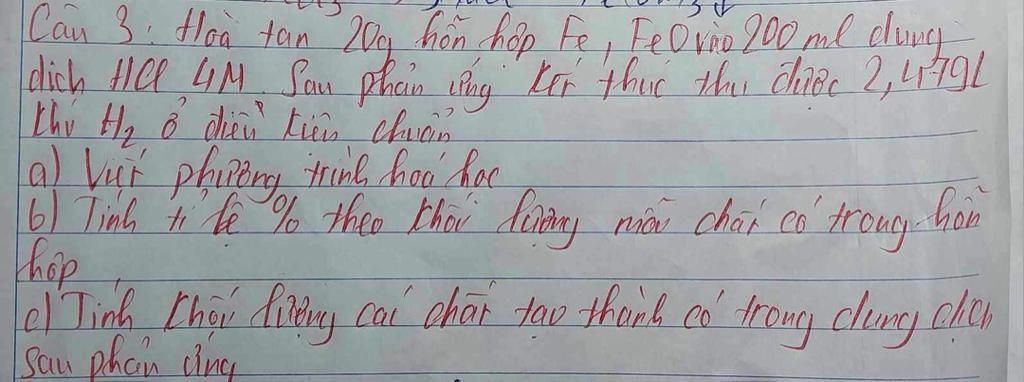 Câu 3: Hoà tan 20g hỗn hợp Fe, FeO vào 200 ml dung
dịch HCl 4M. Sau phản ứng kết thúc thu được 2,479L
khí H2 ở điều kiện chuẩn
a) Viết phương trình hoá học
b) Tính tỉ lệ % theo khối lượng mỗi chất có trong hỗn
hợp
c) Tính khối lượng các chất tạo thành có trong dung dịch
sau phản ứng